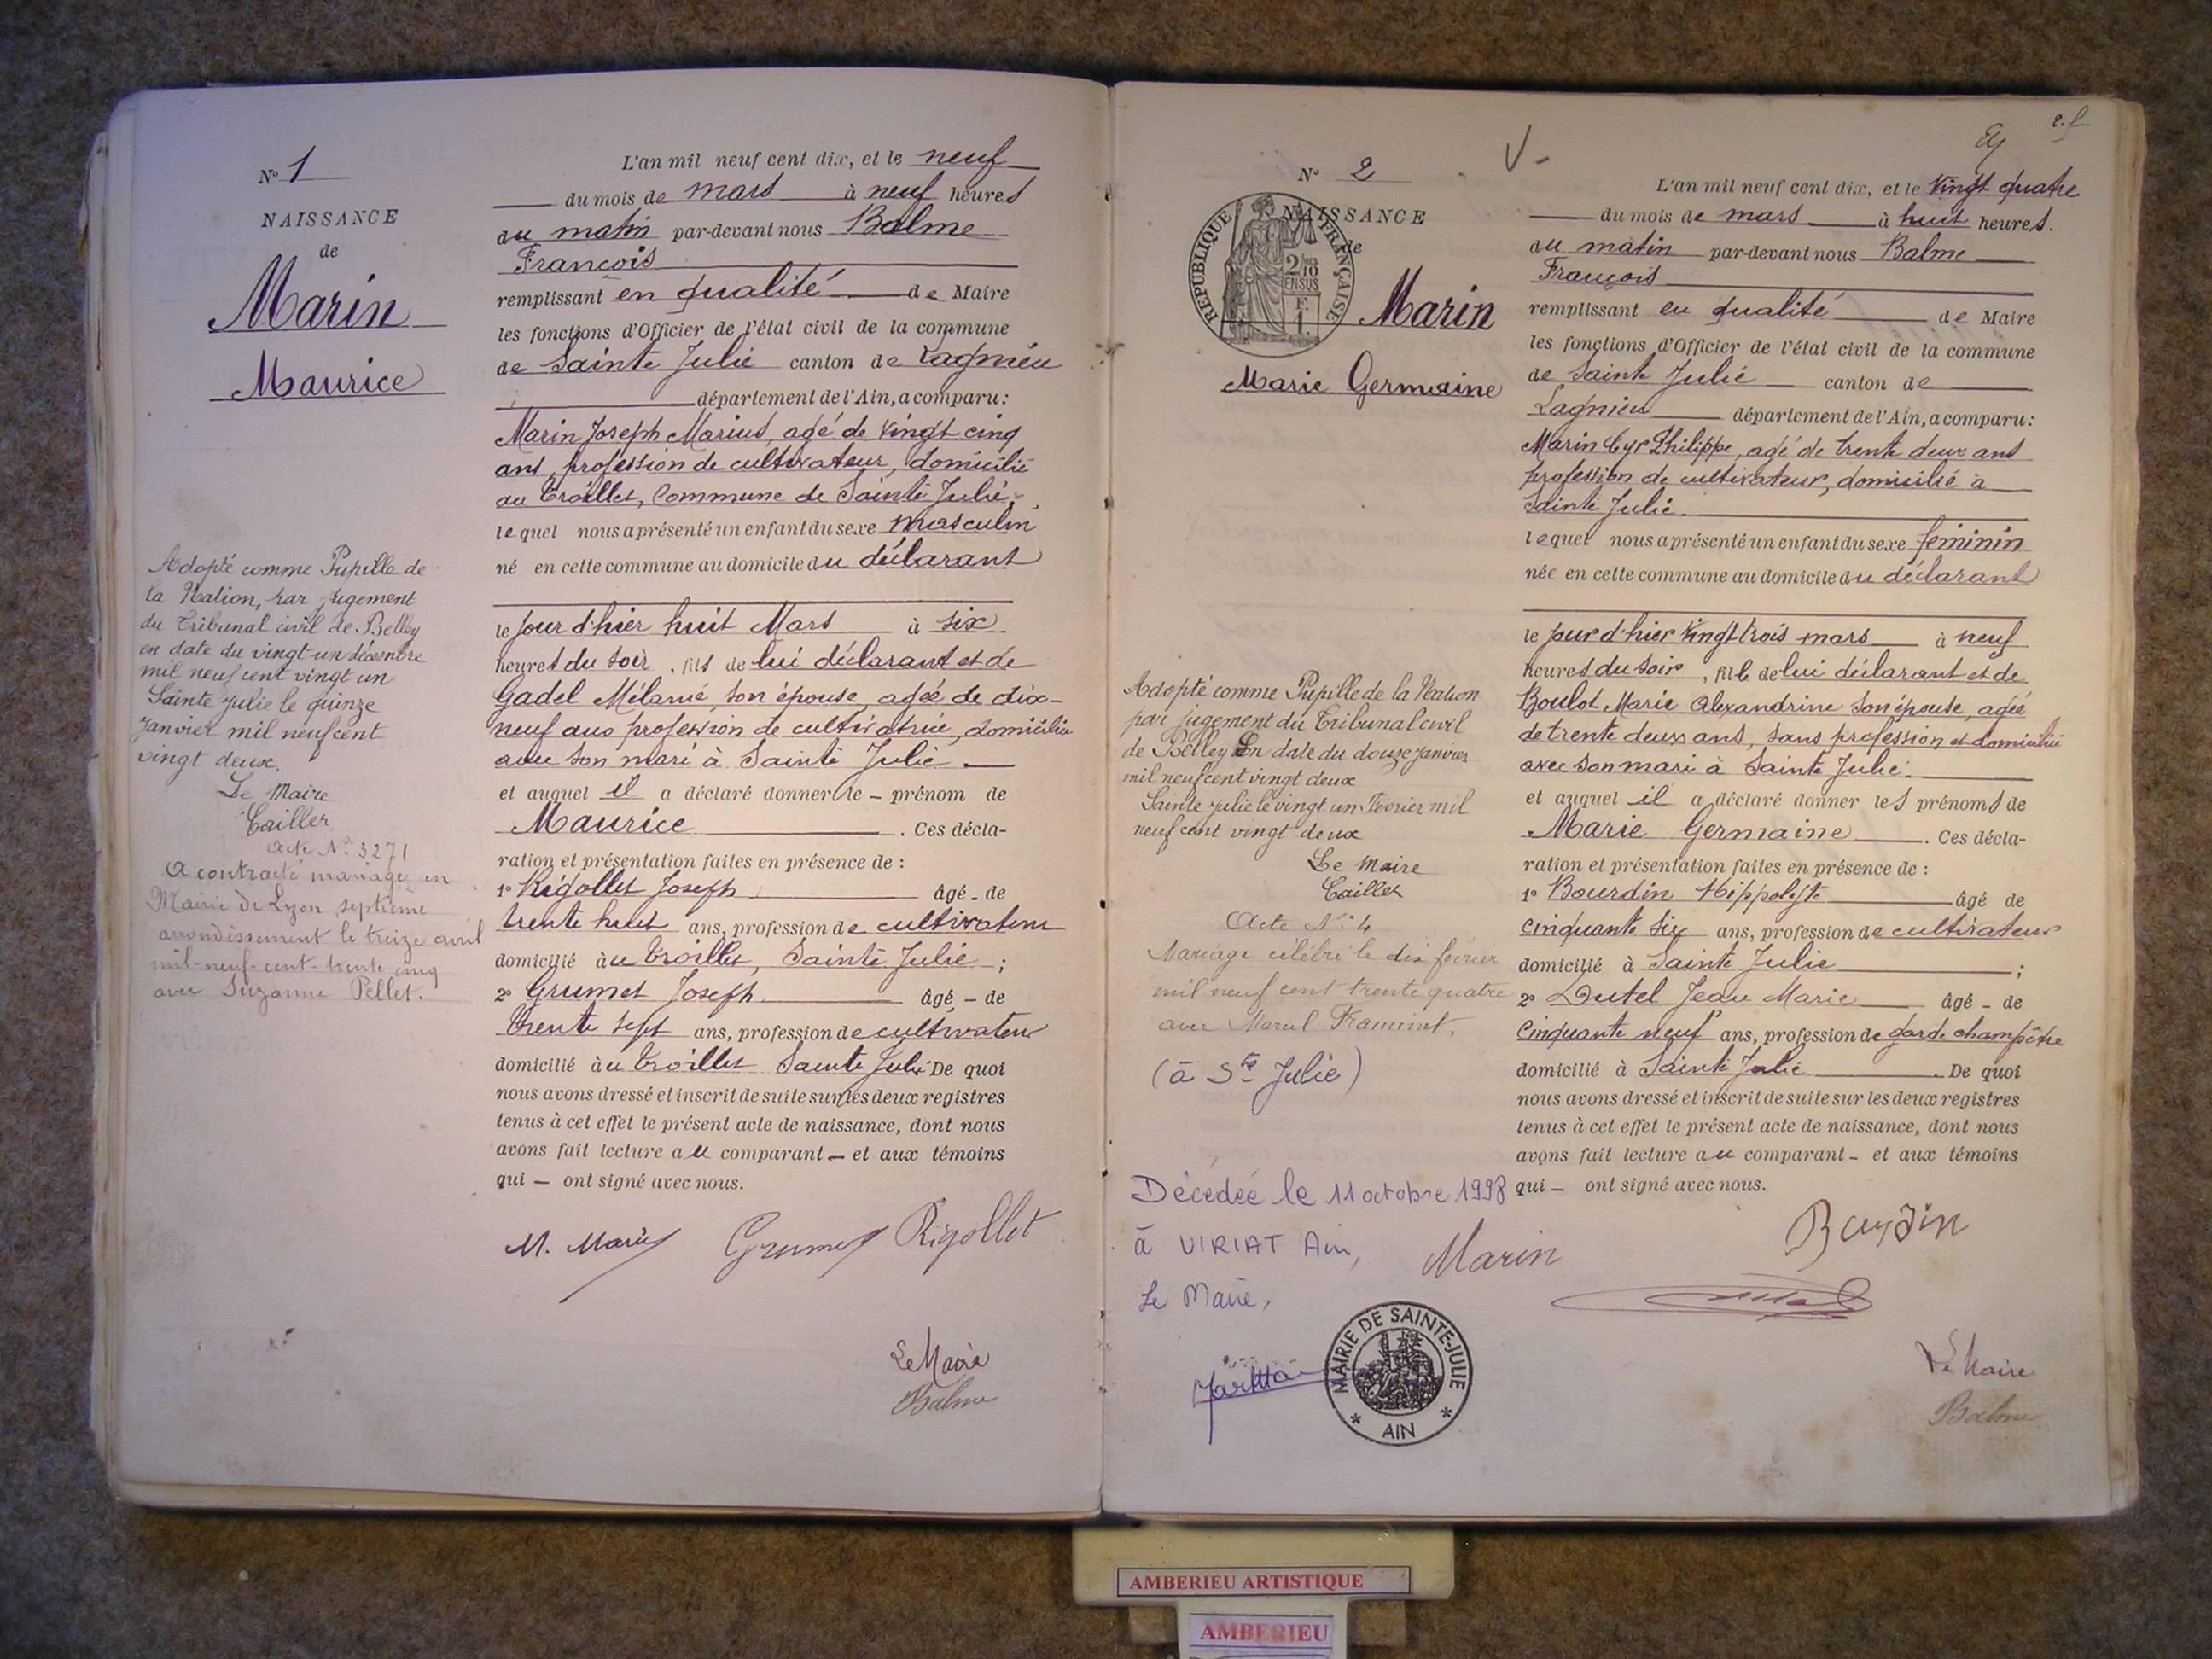 N° 1
NAISSANCE
de
Marin
Maurice
Adopté comme Pupille de
la Nation, par jugement
du Tribunal civil de Belley
en date du vingt-un décembre
mil neuf cent vingt un
Sainte Julie le quinze
janvier mil neuf cent
vingt deux.
Le Maire
Cailler
Acte N° 3271
A contracté mariage en
Mairie de Lyon septième
arrondissement le treize avril
mil-neuf-cent-trente cinq
avec Suzanne Pellet.
L'an mil neuf cent dix, et le neuf
du mois de mars à neuf heures
du matin par-devant nous Balme
François
remplissant en qualité de Maire
les fonctions d'Officier de l'état civil de la commune
de Sainte Julie canton de Lagnieu
département de l'Ain, a comparu:
Marin Joseph Marius, agé de vingt cinq
ans, profession de cultivateur, domicilié
au Troillet, Commune de Sainte Julie,
lequel nous a présenté un enfant du sexe masculin
né en cette commune au domicile du déclarant
le jour d'hier huit Mars à six
heures du soir, fils de lui déclarant et de
Gadel Mélanie, son épouse, agée de dix-
neuf ans profession de cultivatrice, domiciliée
avec son mari à Sainte Julie
et auquel il a déclaré donner le prénom de
Maurice. Ces décla-
ration et présentation faites en présence de :
1° Rigollet Joseph âgé de
trente huit ans, profession de cultivateur
domicilié au Troillet, Sainte Julie ;
2° Grumet Joseph âgé de
trente sept ans, profession de cultivateur
domicilié au Troillet Sainte Julie De quoi
nous avons dressé et inscrit de suite sur les deux registres
tenus à cet effet le présent acte de naissance, dont nous
avons fait lecture au comparant et aux témoins
qui ont signé avec nous.
M. Marin Grumet Rigollet
Le Maire
Balme
2. f.
N° 2
NAISSANCE
de
REPUBLIQUE FRANÇAISE
2/10 EN SUS
Marin
Marie Germaine
Adopté comme Pupille de la Nation
par jugement du Tribunal civil
de Belley En date du douze janvier
mil neuf cent vingt deux
Sainte Julie le vingt un Février mil
neuf cent vingt deux
Le Maire
Cailler
Acte N° 4
Mariage célébré le dix février
mil neuf cent trente quatre
avec Marcel
(à Ste Julie)
Décédée le 11 octobre 1998
à VIRIAT Ain,
Le Maire,
MAIRIE DE SAINTE-JULIE
* AIN *
L'an mil neuf cent dix, et le vingt quatre
du mois de mars à huit heures.
du matin par-devant nous Balme
François
remplissant en qualité de Maire
les fonctions d'Officier de l'état civil de la commune
de Sainte Julie canton de
Lagnieu département de l'Ain, a comparu:
Marin Cyr Philippe, agé de trente deux ans
profession de cultivateur, domicilié à
Sainte Julie.
lequel nous a présenté un enfant du sexe féminin
née en cette commune au domicile du déclarant
le jour d'hier vingt trois mars à neuf
heures du soir, fille de lui déclarant et de
Boulot Marie Alexandrine son épouse, agée
de trente deux ans, sans profession et domiciliée
avec son mari à Sainte Julie.
et auquel il a déclaré donner les prénoms de
Marie Germaine. Ces décla-
ration et présentation faites en présence de :
1° Bourdin Hippolyte âgé de
cinquante six ans, profession de cultivateur
domicilié à Sainte Julie ;
2° Dutel Jean Marie âgé de
cinquante neuf ans, profession de garde champêtre
domicilié à Sainte Julie. De quoi
nous avons dressé et inscrit de suite sur les deux registres
tenus à cet effet le présent acte de naissance, dont nous
avons fait lecture au comparant et aux témoins
qui ont signé avec nous.
Marin Bourdin
Le Maire
Balme
AMBERIEU ARTISTIQUE
AMBERIEU